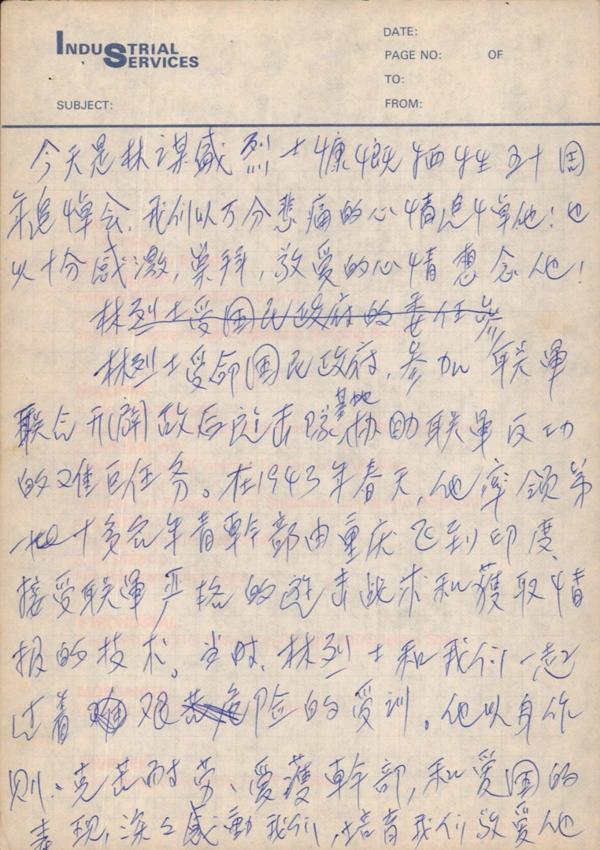 INDUSTRIAL
SERVICES
DATE:
PAGE NO: OF
TO:
SUBJECT:
FROM:
今天是林谋盛烈士慷慨牺牲五十周
年追悼会，我们以万分悲痛的心情追悼他！也
以十分感激，崇拜，敬爱的心情想念他！
林烈士受国民政府的委任参
林烈士受命国民政府，参加联軍
联合开闢敌后遊击隊基地协助联軍反功
的艰巨任务。在1943年春天，他率领第
一批十多名年青幹部由重庆飞到印度，
接受联軍严格的遊击战术和獲取情
报的技术。当时，林烈士和我们一起
过着艰危险的受训。他以身作
则、克苦耐劳、爱護幹部，和爱国的
表现，深々感動我们，培育我们敬爱他